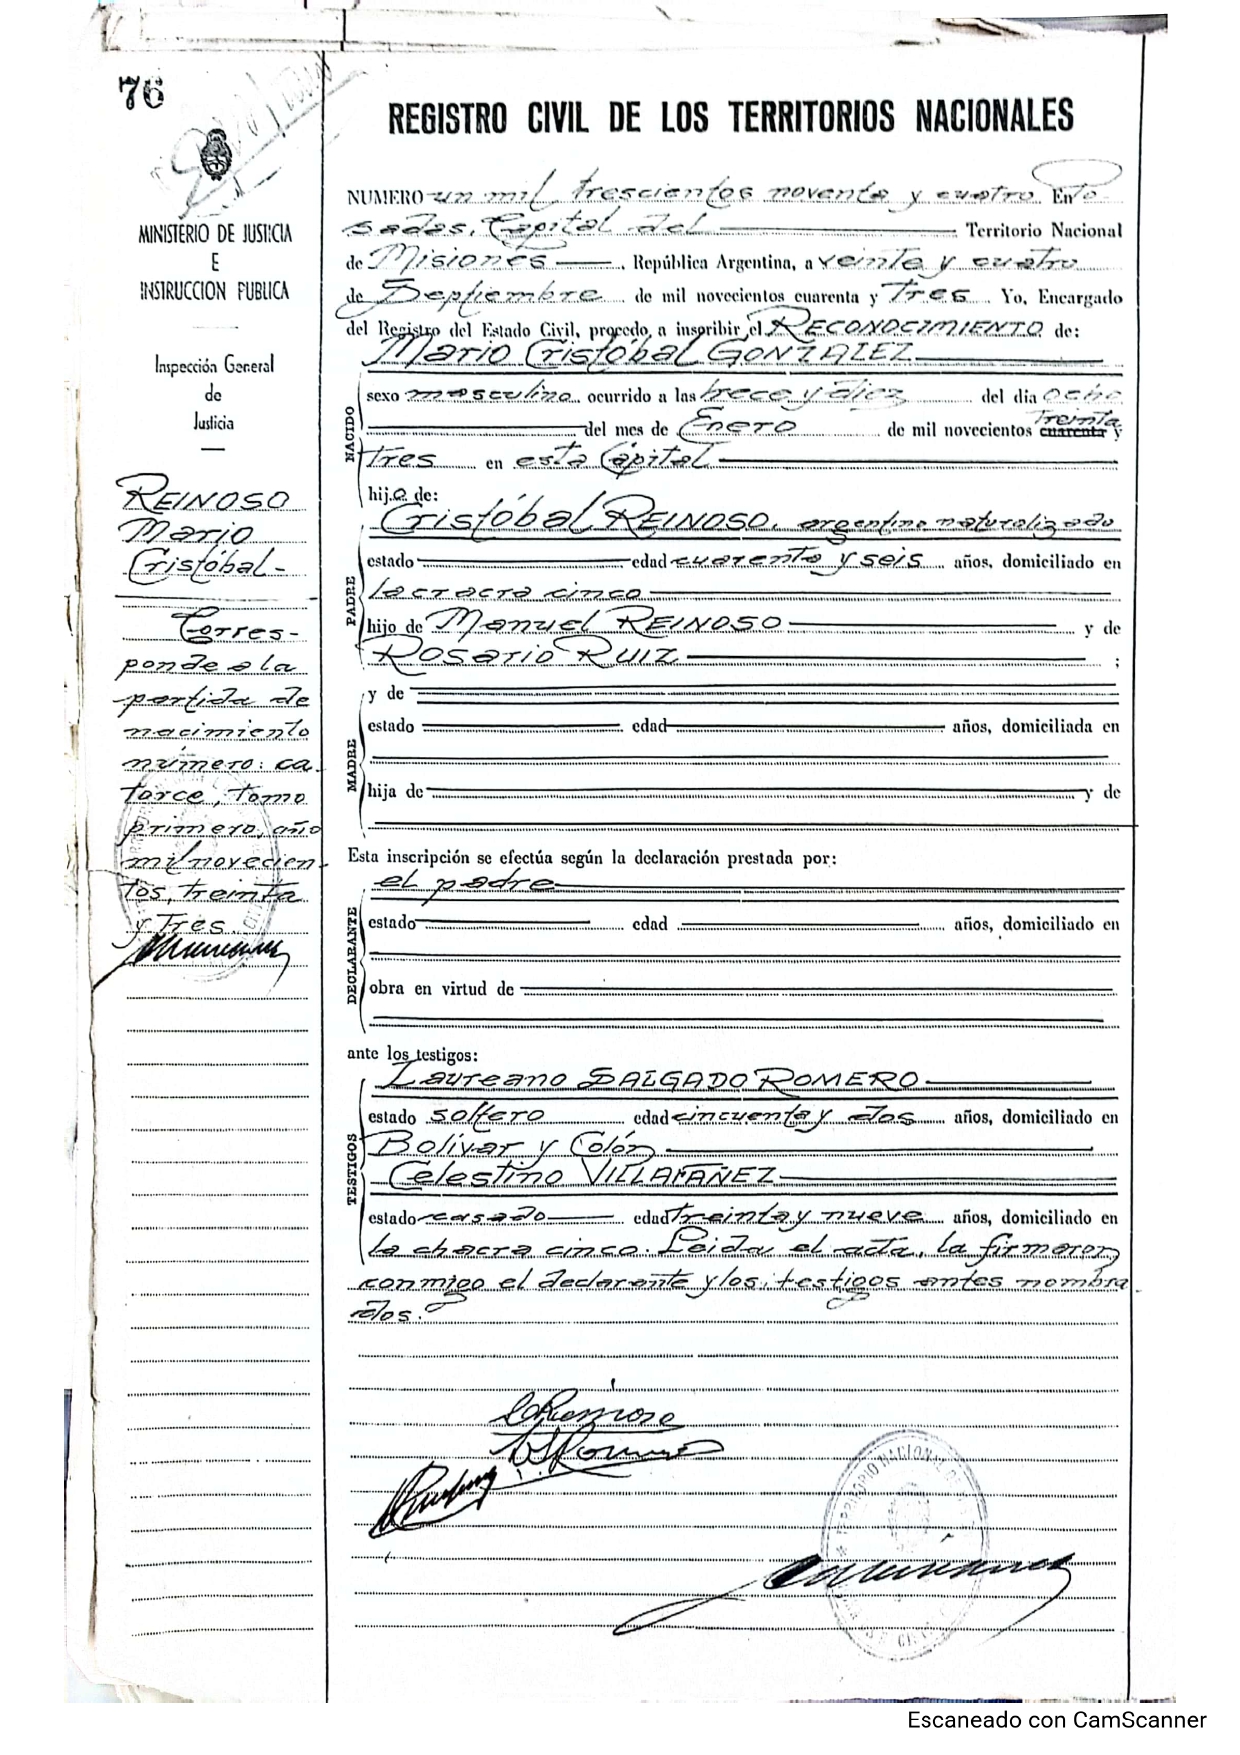 76
MINISTERIO DE JUSTICIA
E
INSTRUCCION PUBLICA
Inspección General
de
Justicia
REINOSO
Mario
Cristóbal-
Corres-
ponde a la
partida de
nacimiento
número: ca
torce, tomo
primero, año
mil novecien-
tos, treinta
y Tres.
REGISTRO CIVIL DE LOS TERRITORIOS NACIONALES
NUMERO un mil, trescientos noventa y cuatro En Po
sadas, Capital del Territorio Nacional
de Misiones, República Argentina, a veinte y cuatro
de Septiembre de mil novecientos cuarenta y Tres Yo, Encargado
del Registro del Estado Civil, procedo a inscribir el RECONOCIMIENTO de:
Mario Cristóbal GONZALEZ
NACIDO
sexo masculino ocurrido a las trece y diez del dia ocho
del mes de Enero de mil novecientos cuarenta Treinta y
Tres en esta Capital
hijo de:
PADRE
Cristóbal REINOSO, argentino naturalizado
estado edad cuarenta y seis años, domiciliado en
la cracra cinco
hijo de Manuel REINOSO y de
Rosario Ruiz ;
MADRE
y de
estado edad años, domiciliada en
hija de y de
Esta inscripción se efectúa según la declaración prestada por:
DECLARANTE
el padre
estado edad años, domiciliado en
obra en virtud de
ante los testigos:
TESTIGOS
Laureano SALGADO ROMERO
estado soltero edad cincuenta y dos años, domiciliado en
Bolívar y Colón
Celestino VILLAFAÑEZ
estado casado edad treinta y nueve años, domiciliado en
la chacra cinco. Leida el acta, la firmaron
conmigo el declarante y los testigos antes nombra
dos.
Escaneado con CamScanner